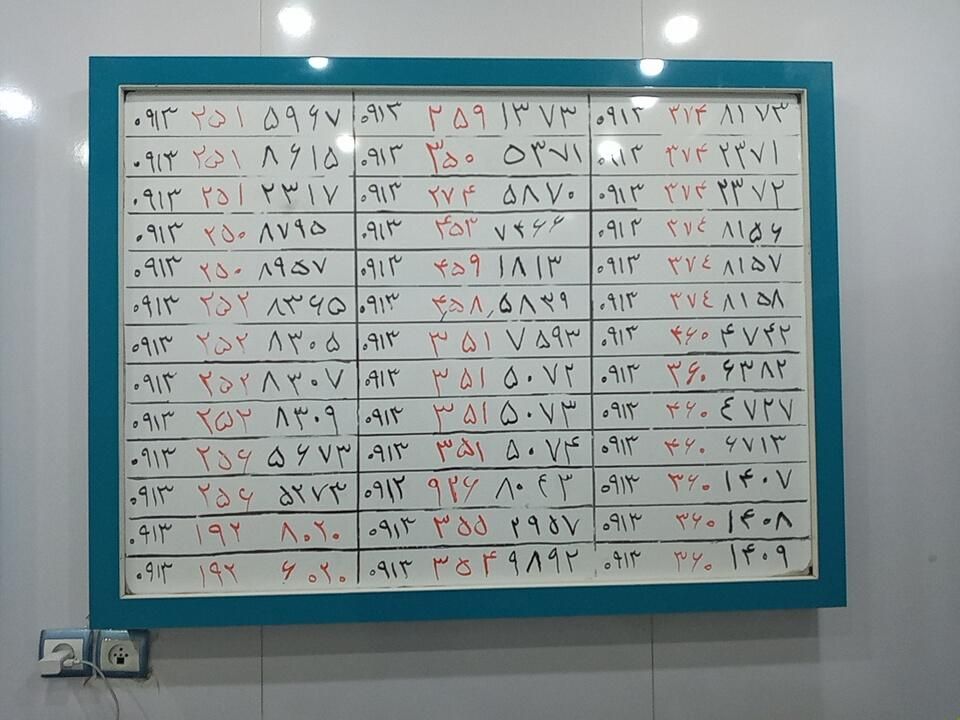 ۰۹۱۳ ۲۵۱ ۵۹۶۷
۰۹۱۳ ۲۵۱ ۸۶۱۵
۰۹۱۳ ۲۵۱ ۲۳۱۷
۰۹۱۳ ۲۵۰ ۸۷۹۵
۰۹۱۳ ۲۵۰ ۸۹۵۷
۰۹۱۳ ۲۵۲ ۸۳۶۵
۰۹۱۳ ۲۵۲ ۸۳۰۵
۰۹۱۳ ۲۵۲ ۸۳۰۷
۰۹۱۳ ۲۵۲ ۸۳۰۹
۰۹۱۳ ۲۵۶ ۵۶۷۳
۰۹۱۳ ۲۵۶ ۵۲۷۳
۰۹۱۳ ۱۹۲ ۸۰۲۰
۰۹۱۳ ۱۹۲ ۶۰۲۰
۰۹۱۳ ۲۵۹ ۱۳۷۳
۰۹۱۳ ۳۵۰ ۵۳۷۱
۰۹۱۳ ۲۷۴ ۵۸۷۰
۰۹۱۳ ۴۵۳ ۷۴۶۶
۰۹۱۳ ۴۵۹ ۱۸۱۳
۰۹۱۳ ۴۵۸ ۵۸۳۹
۰۹۱۳ ۳۵۱ ۷۵۹۳
۰۹۱۳ ۳۵۱ ۵۰۷۲
۰۹۱۳ ۳۵۱ ۵۰۷۳
۰۹۱۳ ۳۵۱ ۵۰۷۴
۰۹۱۲ ۹۲۶ ۸۰۴۳
۰۹۱۳ ۳۵۵ ۲۹۵۷
۰۹۱۳ ۳۵۴ ۹۸۹۲
۰۹۱۳ ۳۷۴ ۸۱۷۳
۰۹۱۳ ۳۷۴ ۲۳۷۱
۰۹۱۳ ۳۷۴ ۲۳۷۲
۰۹۱۳ ۳۷۴ ۸۱۵۶
۰۹۱۳ ۳۷۴ ۸۱۵۷
۰۹۱۳ ۳۷۴ ۸۱۵۸
۰۹۱۳ ۴۶۰ ۴۷۴۲
۰۹۱۳ ۳۶۰ ۶۳۸۲
۰۹۱۳ ۴۶۰ ۴۷۲۷
۰۹۱۳ ۴۶۰ ۶۷۱۳
۰۹۱۳ ۳۶۰ ۱۴۰۷
۰۹۱۳ ۳۶۰ ۱۴۰۸
۰۹۱۳ ۳۶۰ ۱۴۰۹